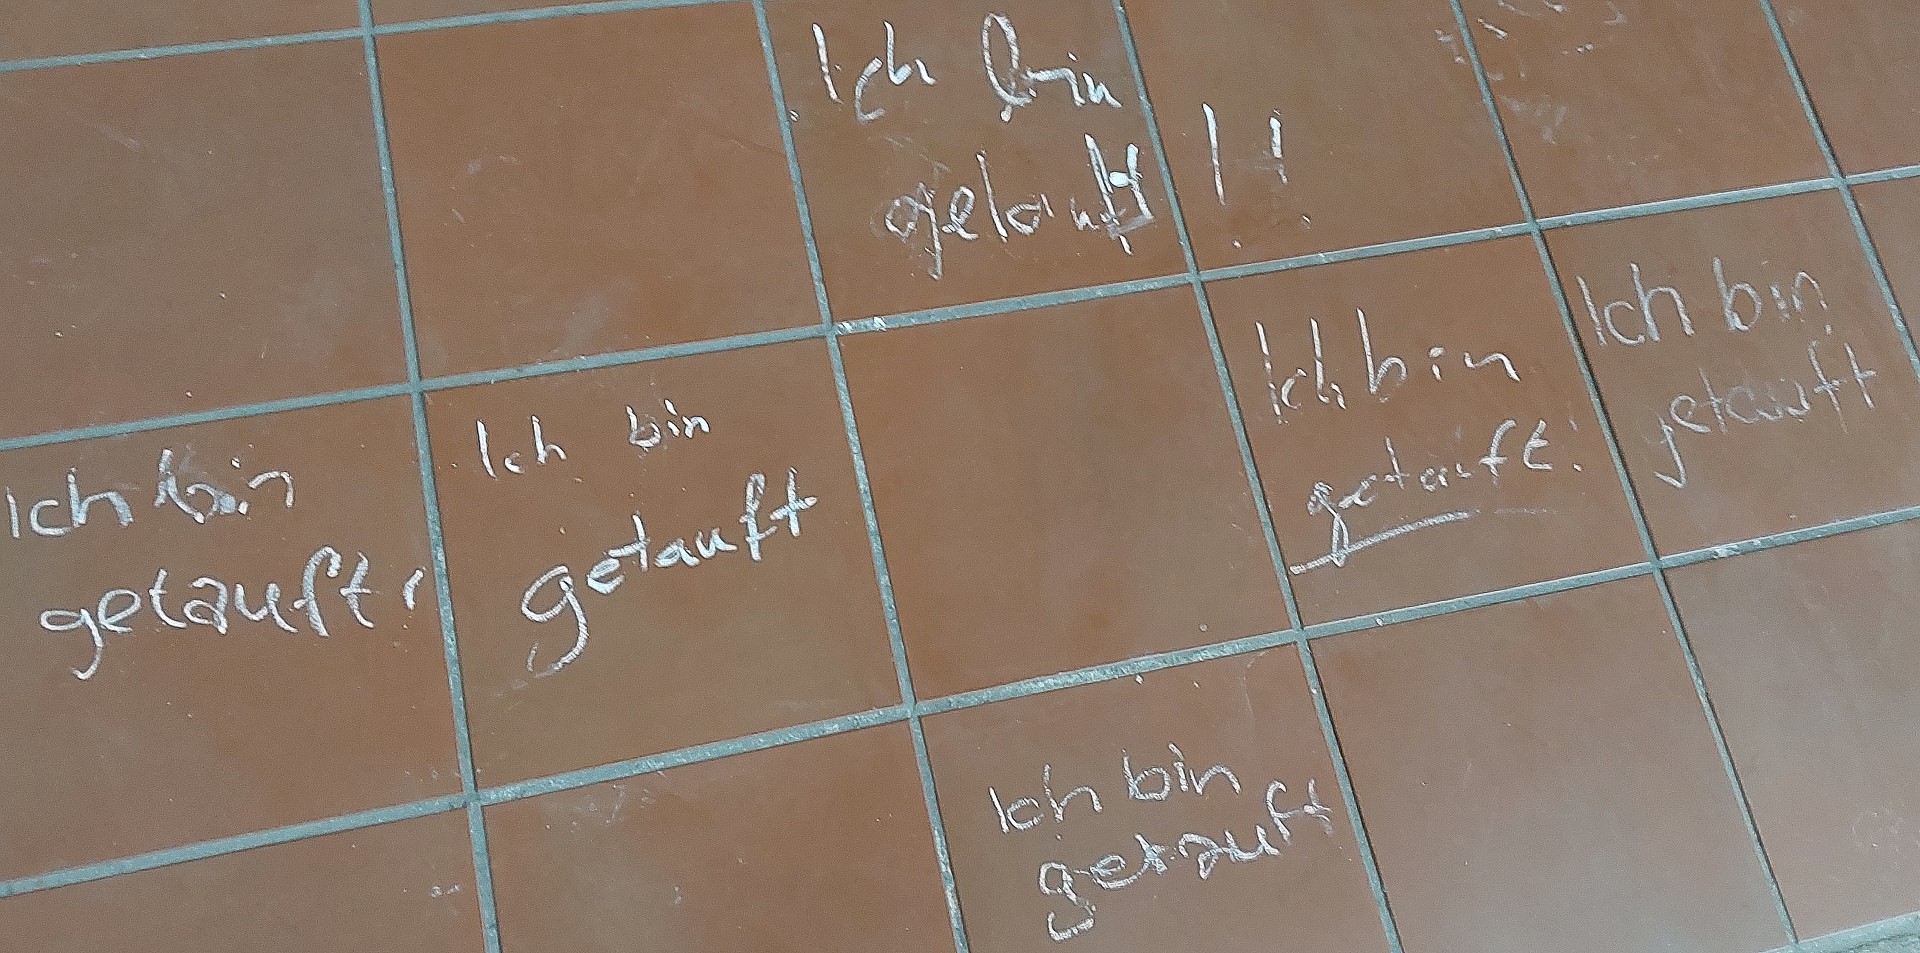 Ich bin
getauft!!
Ich bin
getauft!
Ich bin
getauft
Ich bin
getauft!
Ich bin
getauft
Ich bin
getauft